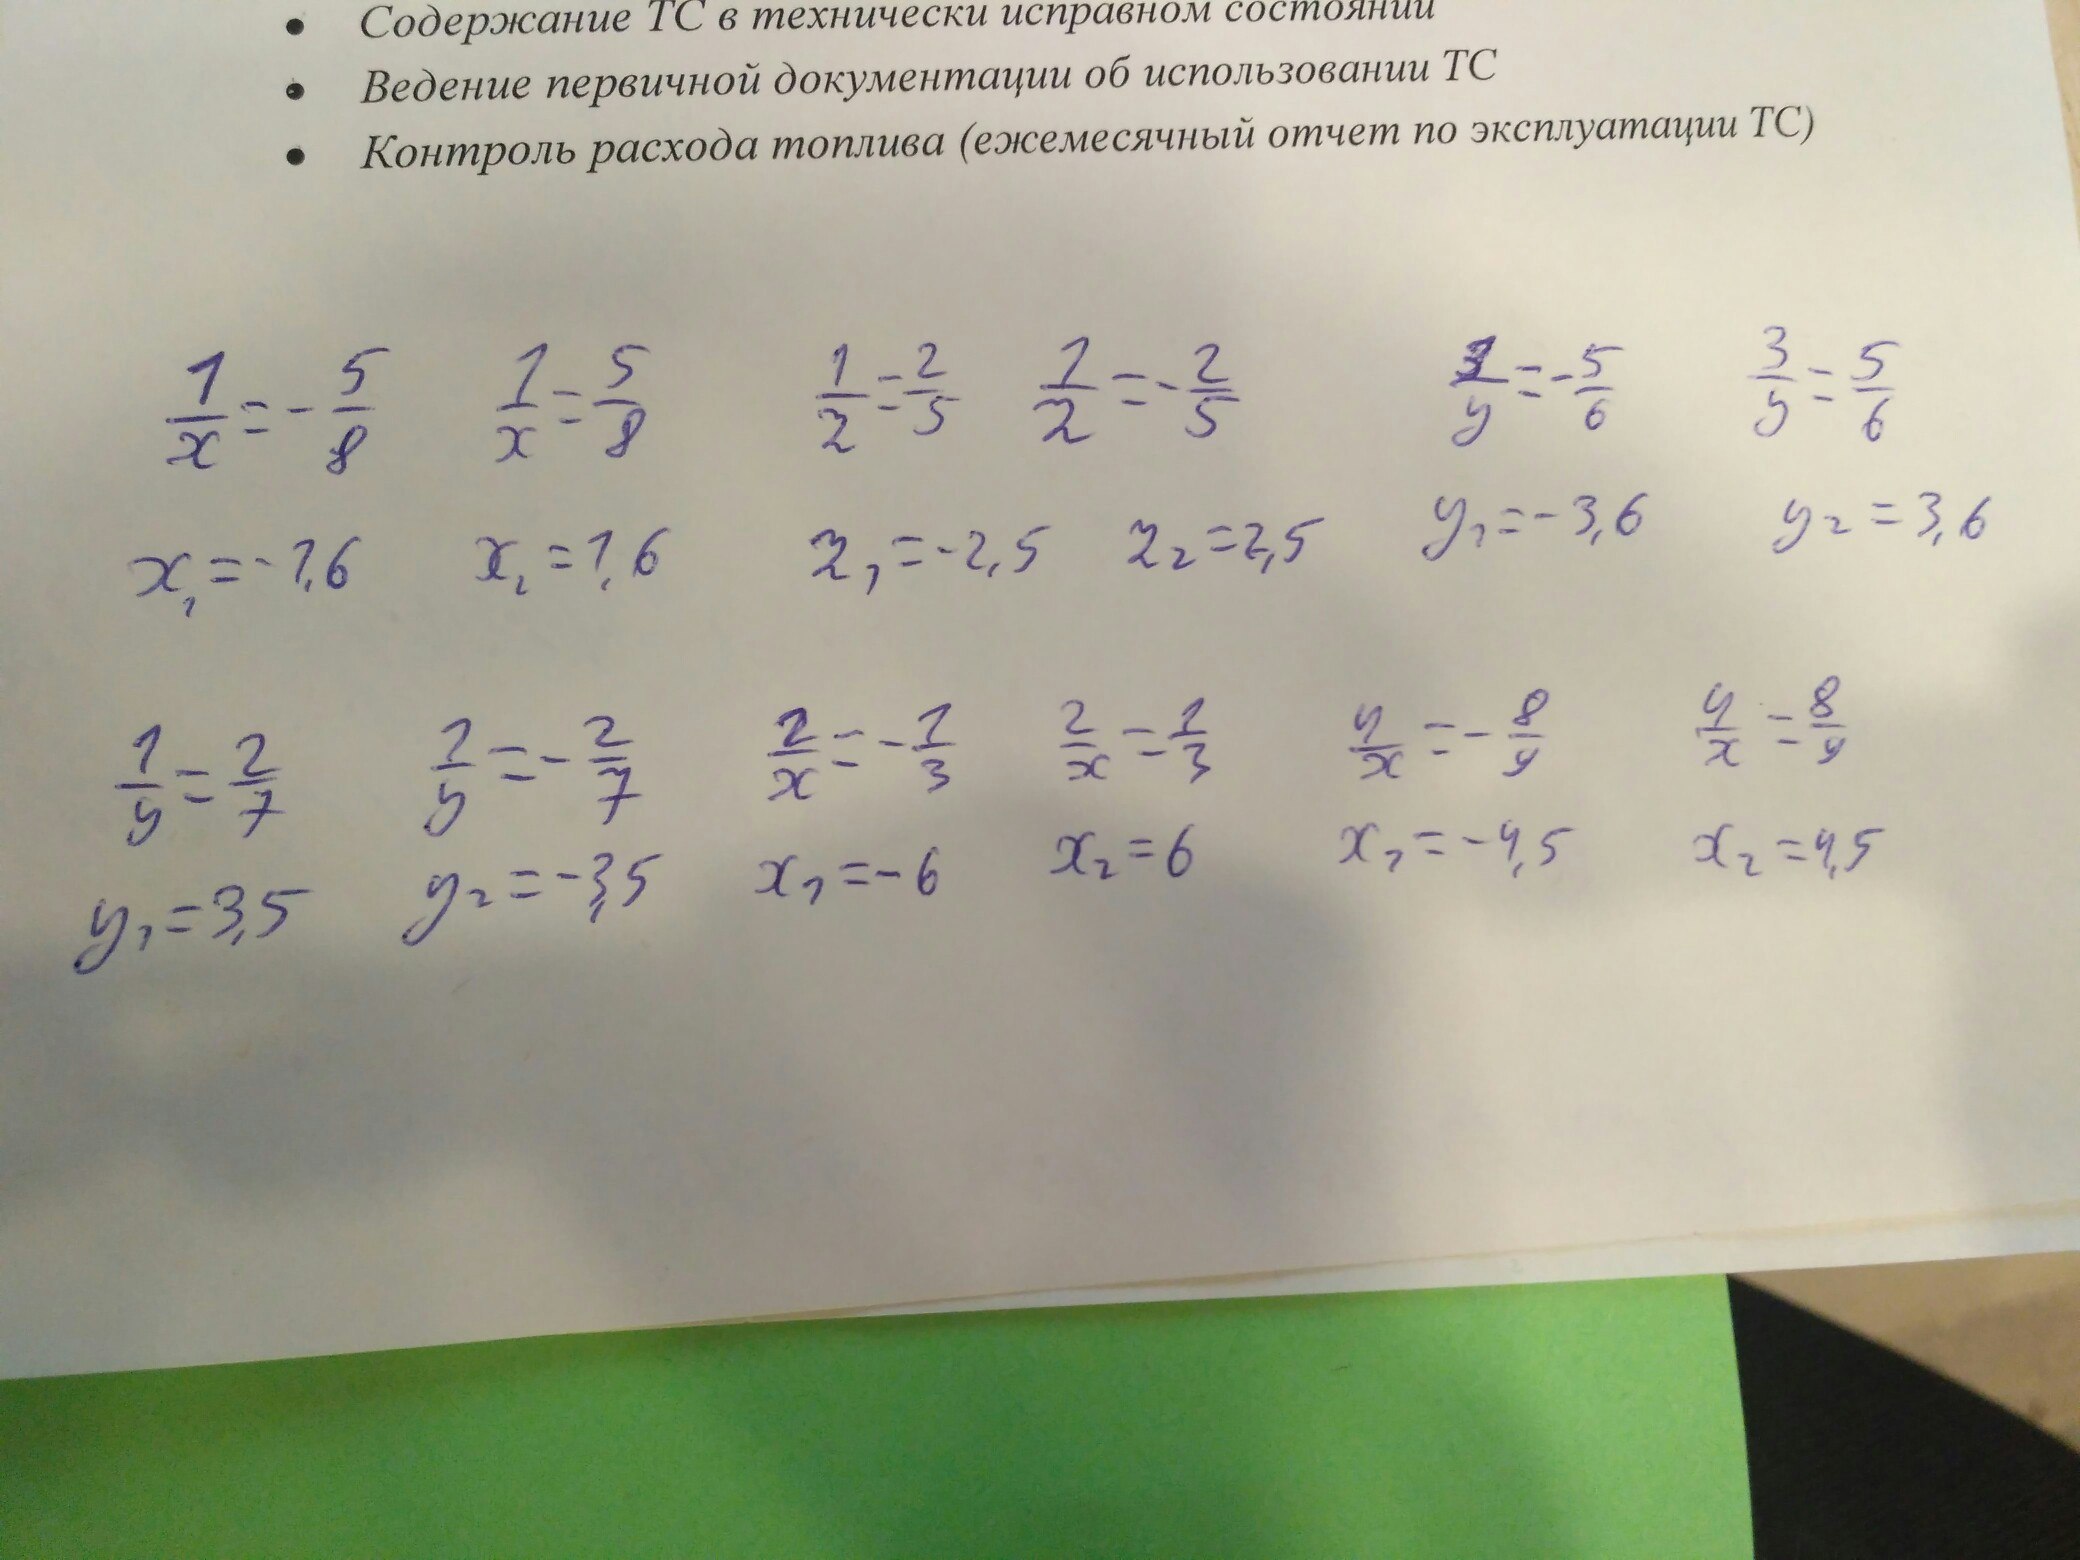 • Содержание ТС в технически исправном состоянии
• Ведение первичной документации об использовании ТС
• Контроль расхода топлива (ежемесячный отчет по эксплуатации ТС)
1/x = - 5/8   1/x = 5/8   1/z = 2/5   1/z = - 2/5   3/y = - 5/6   3/y = 5/6
x₁ = -1,6   x₂ = 1,6   z₁ = -2,5   z₂ = 2,5   y₁ = -3,6   y₂ = 3,6
1/y = 2/7   1/y = - 2/7   2/x = - 1/3   2/x = 1/3   4/x = - 8/9   4/x = 8/9
y₁ = 3,5   y₂ = -3,5   x₁ = -6   x₂ = 6   x₁ = -4,5   x₂ = 4,5